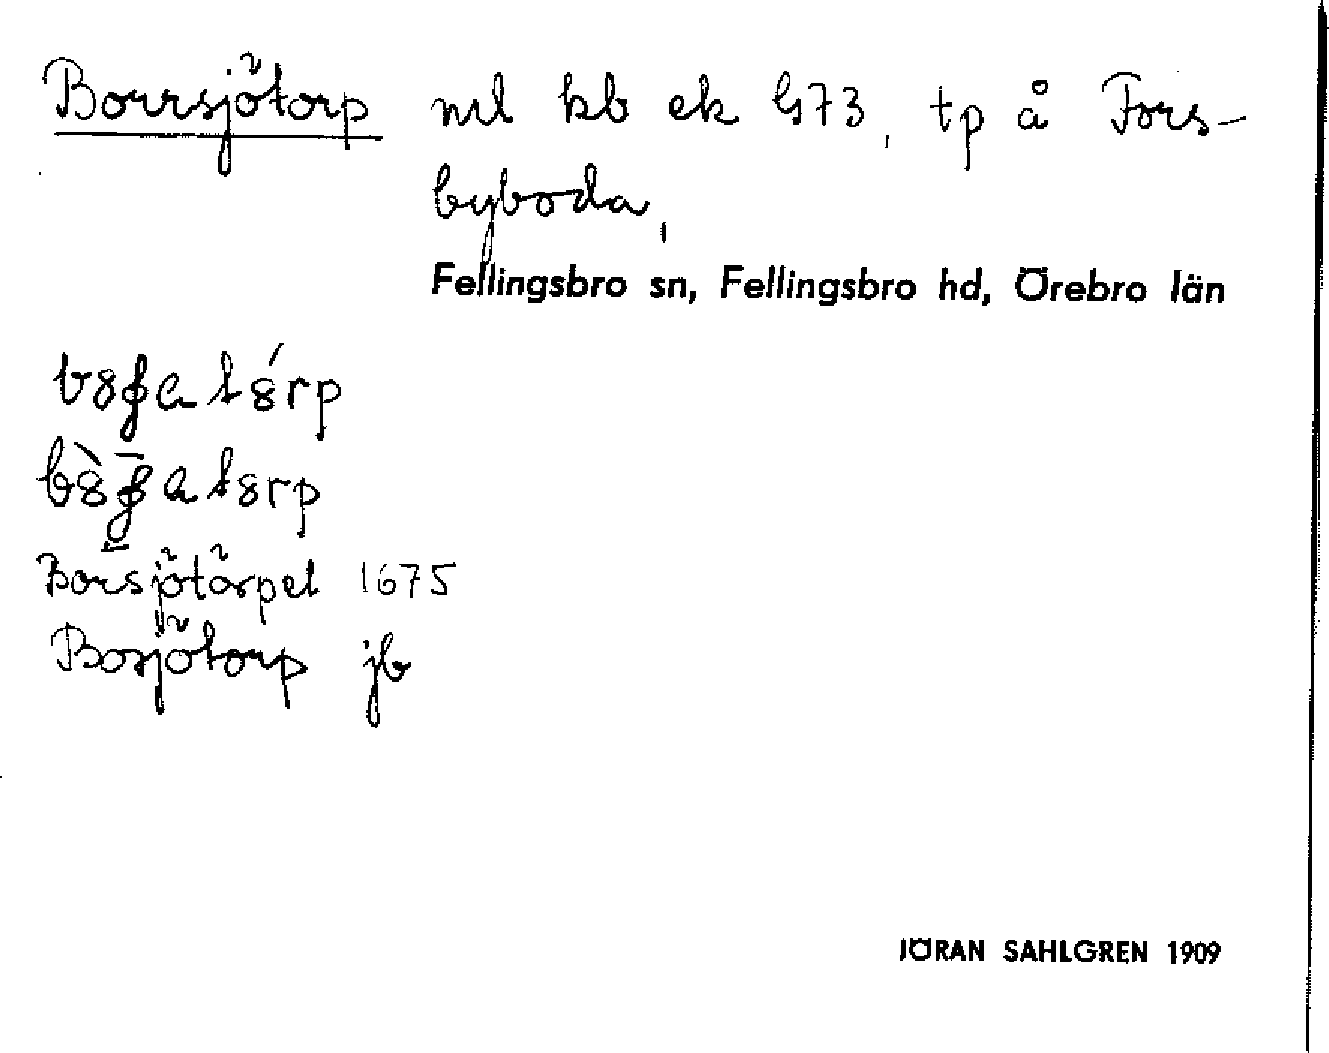 Borrsjötorp ml kb ek G73, tp å Fors-
byboda,
Fellingsbro sn, Fellingsbro hd, Örebro län
Borsjötorpet 1675
Bosjötorp jb
JÖRAN SAHLGREN 1909